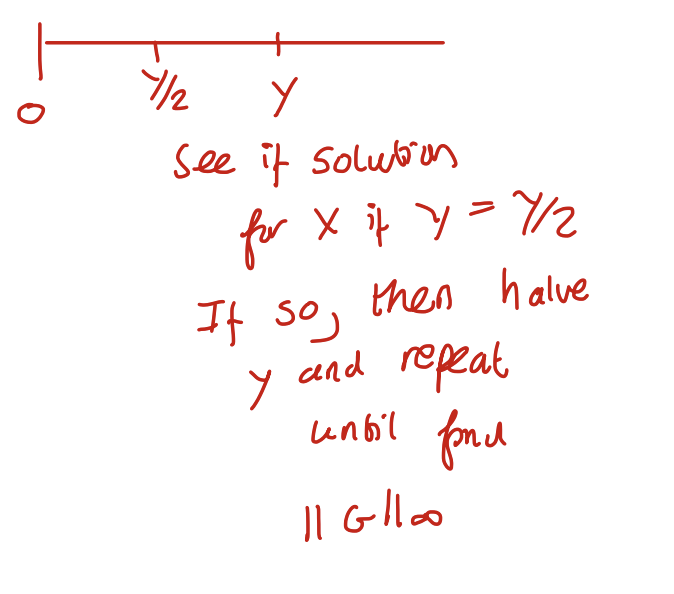 0 Y/2 Y
See if solution
for X if Y = Y/2
If so, then halve
Y and repeat
until find
||G||∞